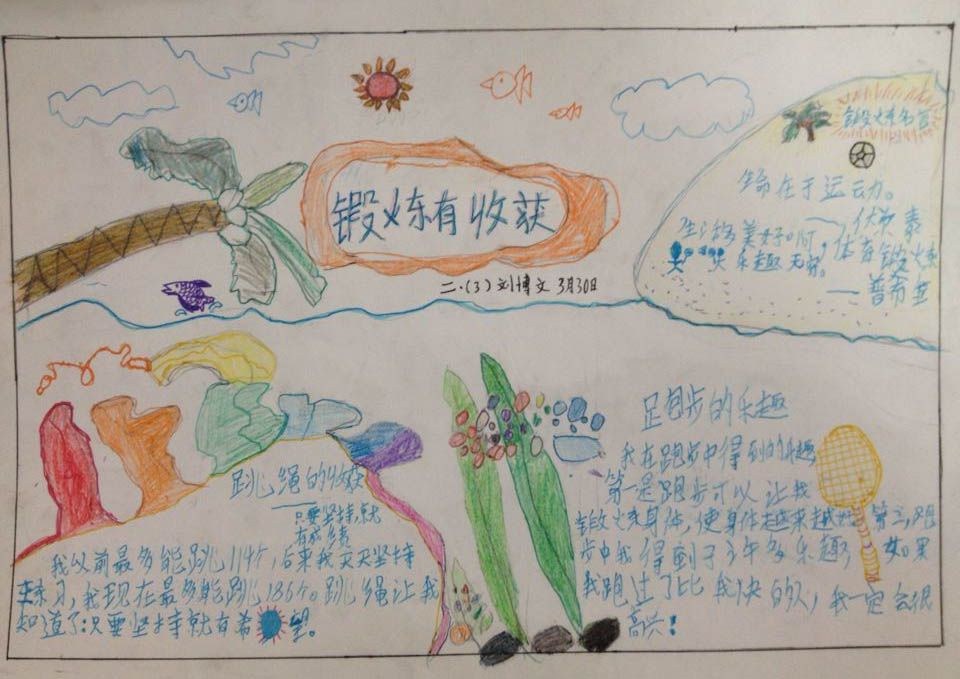 锻炼有收获
二.(3) 刘博文 3月30日
锻炼名言
命在于运动。
——伏尔泰
生活多美好啊,体育锻炼
乐趣无穷。
——普希金
跳绳的收获
——只要坚持,就
有成绩
我以前最多能跳114个,后来我天天坚持
练习,我现在最多能跳186个。跳绳让我
知道了:只要坚持就有希望。
跑步的乐趣
我在跑步中得到的乐趣
第一是跑步可以让我
锻炼身体,使身体越来越好。第二,跑
步中我得到了许多乐趣,如果
我跑过了比我快的人,我一定会很
高兴!